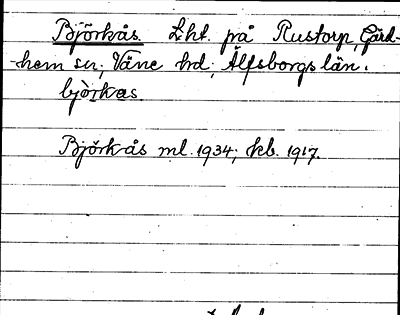 Björkås Lht. på Rustorp, Gärd-
hem sn, Väne hd, Älfsborgs län.
bjö̀rkas
Björkås ml. 1934; kb. 1917.